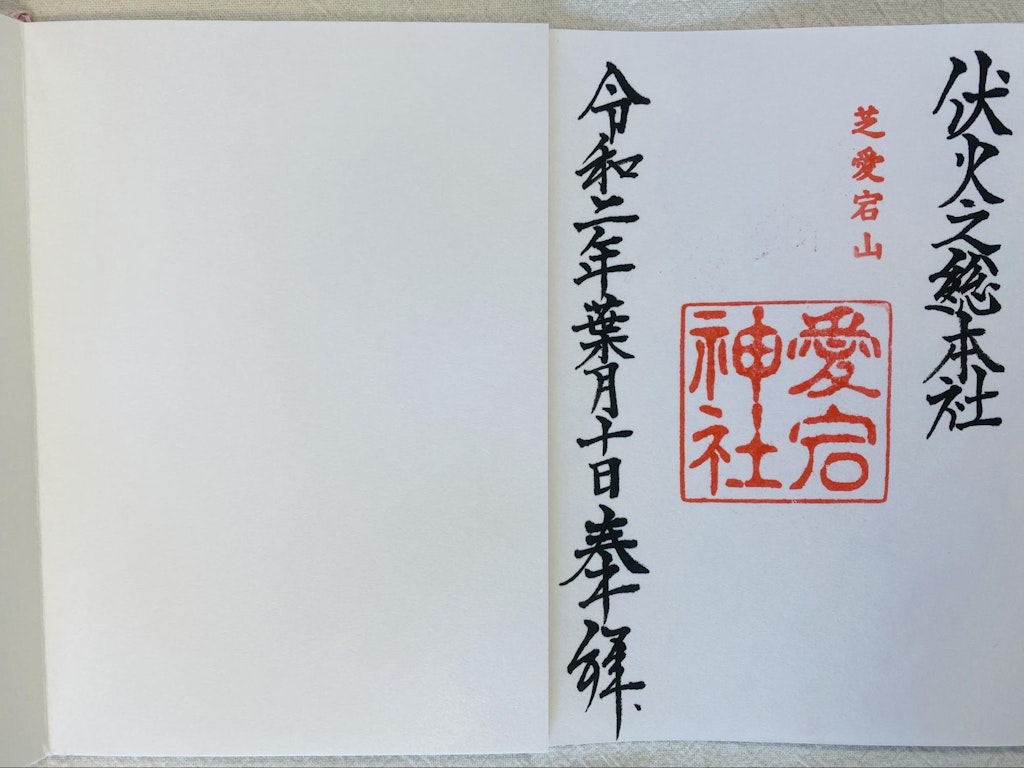 伏火之総本社
芝愛宕山
愛宕
神社
令和二年葉月十日奉拝